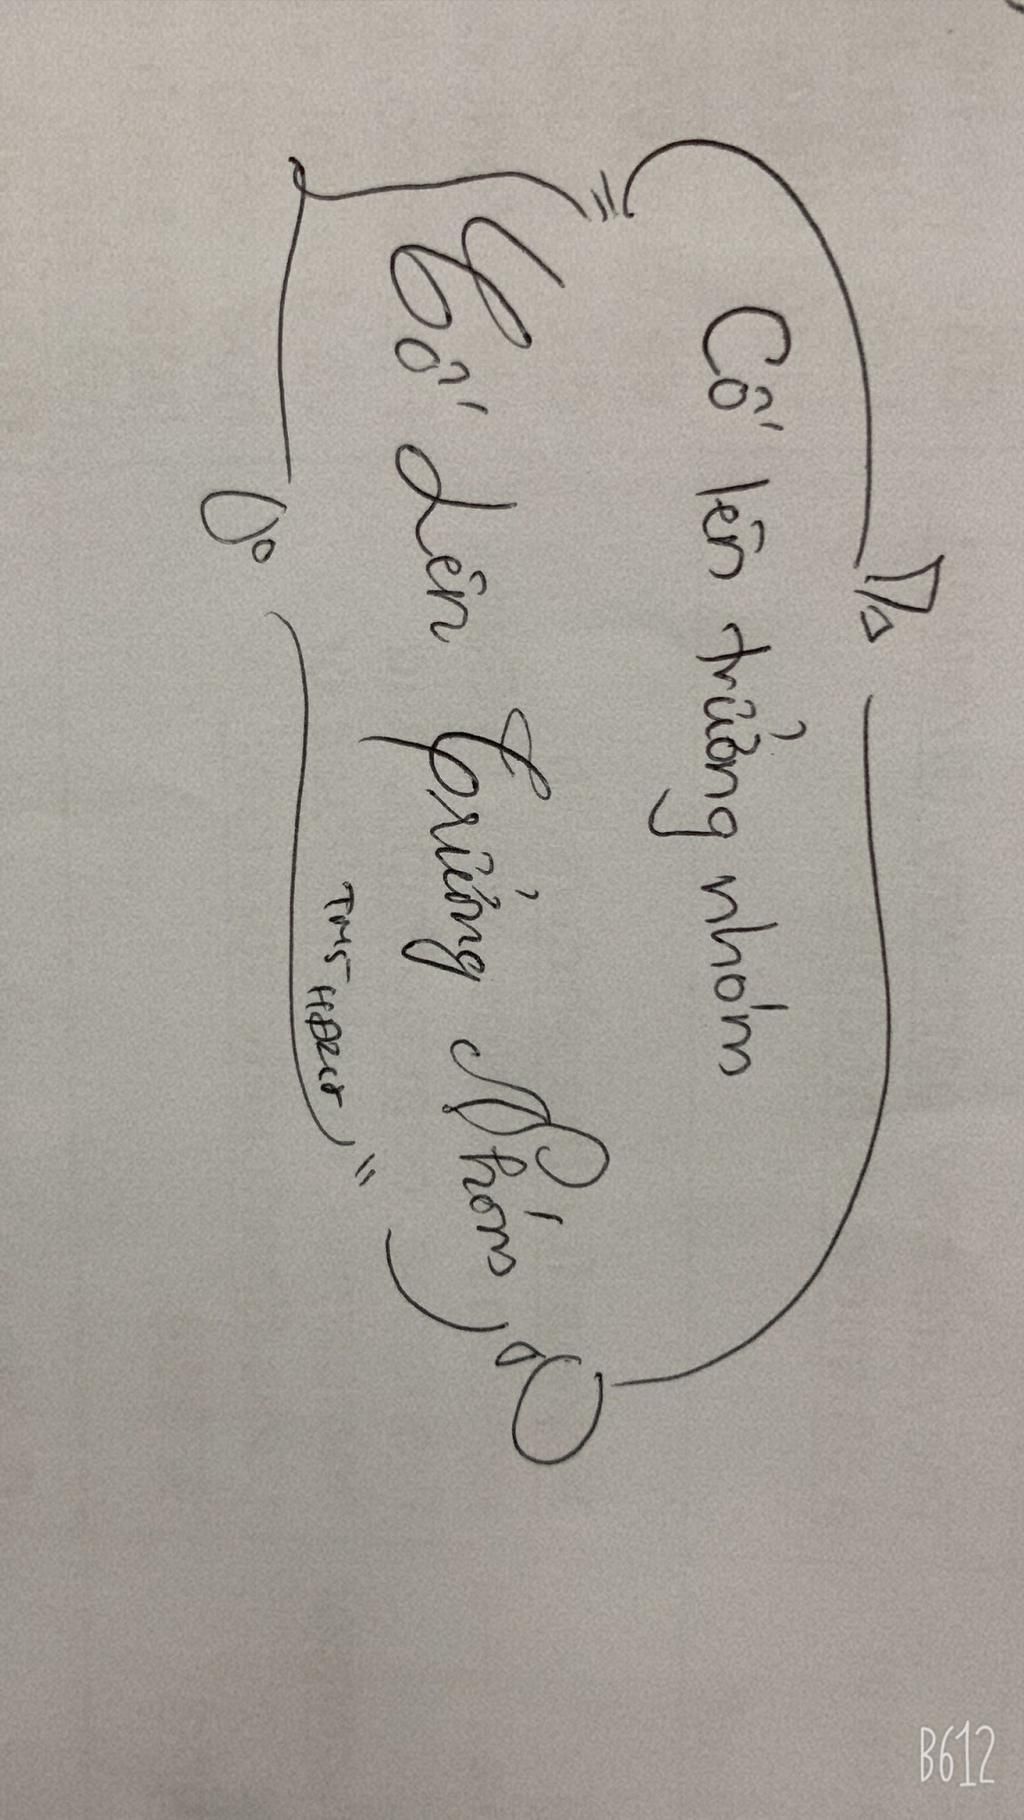 Cố lên trưởng nhóm
Cố Lên Trưởng Nhóm
B612